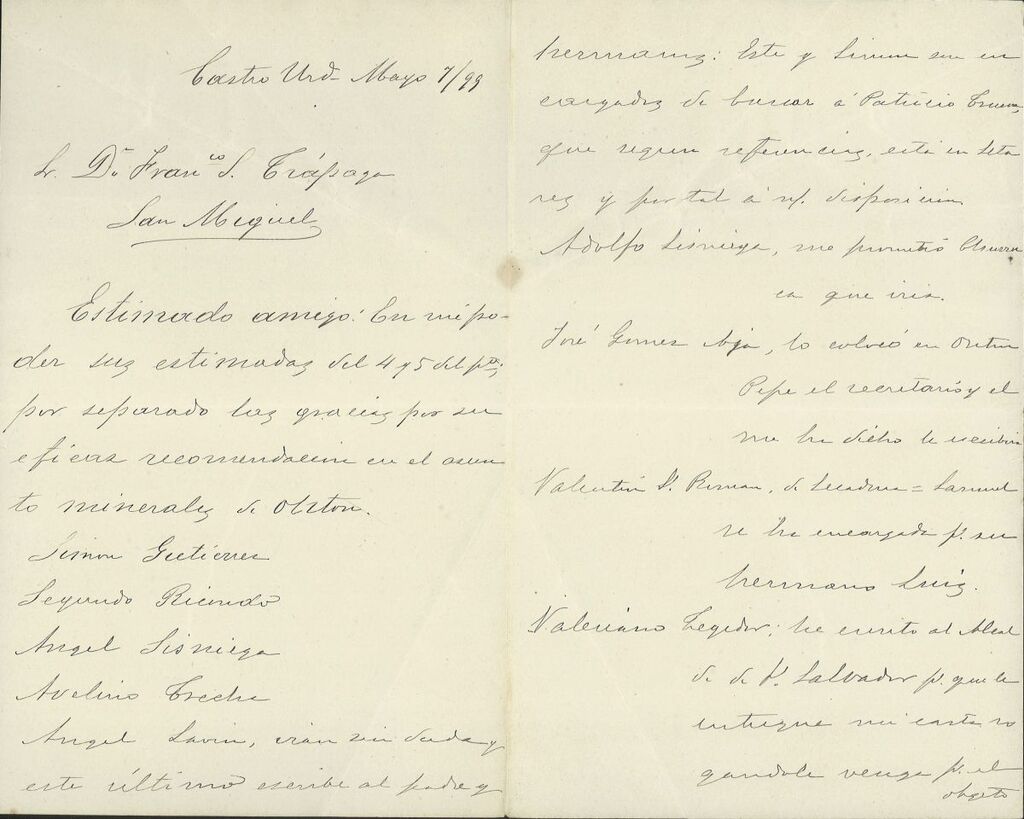 Castro Urd- Mayo 7/99
Sr. Dn Franco S. Trápaga
San Miguel
Estimado amigo: En mi po-
der sus estimadas del 4 y 5 del pte;
por separado las gracias por su
eficaz recomendacion en el asun
to minerales de
Simon Gutierrez
Segundo Ricondo
Angel Sisniega
Avelino Treche
Angel Lavin, iran sin duda y
este último escribe al padre y
hermanos: Este y Simon son en
cargados de buscar á Patricio
que segun referencias, está en Seta
res y por tal á s/. disposicion
Adolfo Sisniega, me prometió
ca que iria.
José Gomez Aja, lo colocó en
Pepe el secretario y el
me ha dicho le escribiria
Valentin S. Roman, de = Samuel
se ha encargado p. su
hermano Luis.
Valeriano Tegedor; he escrito al Alcal
de de S. Salvador p. que le
entregue mi carta ro
gandole venga p. el
objeto